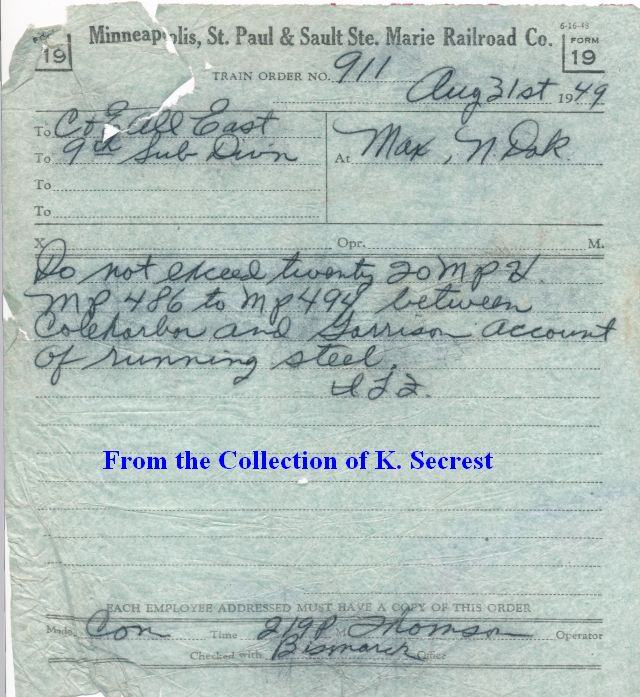 19
Minneapolis, St. Paul & Sault Ste. Marie Railroad Co.
6-16-48
FORM
19
TRAIN ORDER NO. 911
Aug 31st 1949
To C&E All East
To 9th Sub Divn
To
To
At Max, N. Dak.
X Opr. M.
Do not exceed twenty 20 MPH
MP 486 to MP 494 between
Coleharbor and Garrison account
of running steel.
From the Collection of K. Secrest
EACH EMPLOYEE ADDRESSED MUST HAVE A COPY OF THIS ORDER
Made Com Time 219P M Thomson Operator
Checked with Bismarck Office